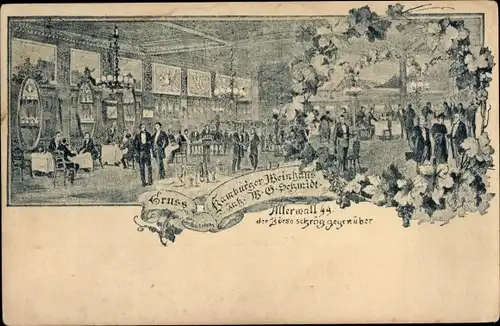 Gruss
Hamburger Weinhaus
Inh. W. G. Schmidt.
Alterwall 44.
der Börse schräg gegenüber